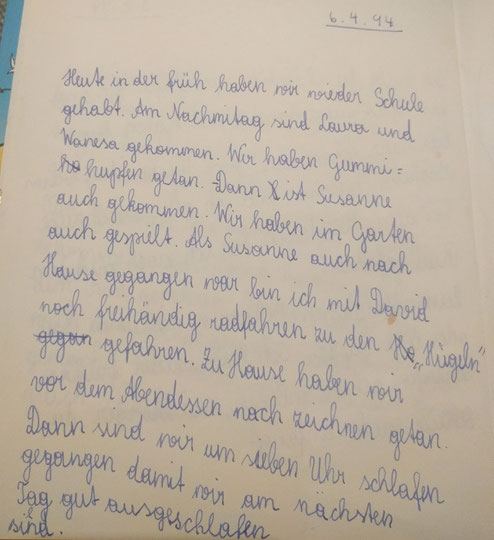 6.4.94
Heute in der früh haben wir wieder Schule
gehabt. Am Nachmitag sind Laura und
Wanesa gekommen. Wir haben Gummi=
ho hupfen getan. Dann ist Susanne
auch gekommen. Wir haben im Garten
auch gespielt. Als Susanne auch nach
Hause gegangen war bin ich mit David
noch freihändig radfahren zu den „Hügeln"
gegan gefahren. Zu Hause haben wir
vor dem Abendessen noch zeichnen getan.
Dann sind wir um sieben Uhr schlafen
gegangen damit wir am nächsten
Tag gut ausgeschlafen
sind.